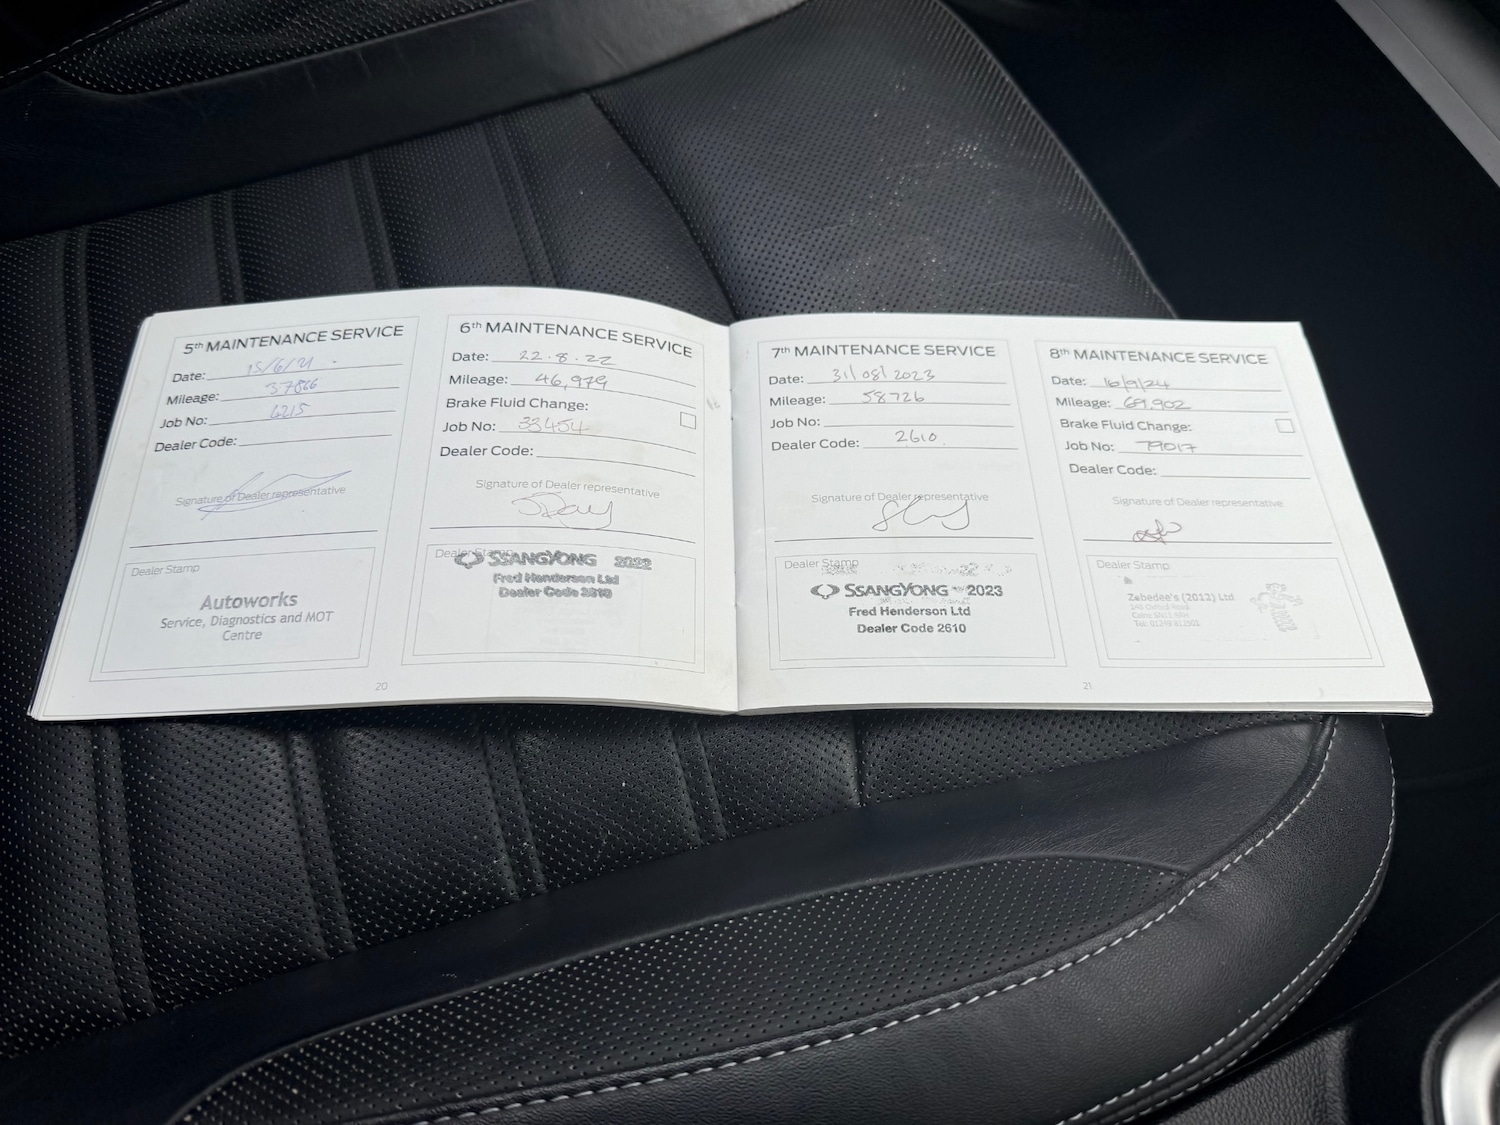 5th MAINTENANCE SERVICE
Date: 15/6/21
Mileage: 37866
Job No: 6215
Dealer Code:
Signature of Dealer representative
Dealer Stamp
Autoworks
Service, Diagnostics and MOT
Centre
20
6th MAINTENANCE SERVICE
Date: 22.8.22
Mileage: 46,979
Brake Fluid Change:
Job No: 33454
Dealer Code:
Signature of Dealer representative
Dealer Stamp
SSANGYONG 2022
Fred Henderson Ltd
Dealer Code 2610
7th MAINTENANCE SERVICE
Date: 31/08/2023
Mileage: 58726
Job No:
Dealer Code: 2610
Signature of Dealer representative
Dealer Stamp
SSANGYONG 2023
Fred Henderson Ltd
Dealer Code 2610
8th MAINTENANCE SERVICE
Date: 16/9/24
Mileage: 69,902
Brake Fluid Change:
Job No: 79017
Dealer Code:
Signature of Dealer representative
Dealer Stamp
Zebedee's (2012) Ltd
Tel: 01249 812501
21